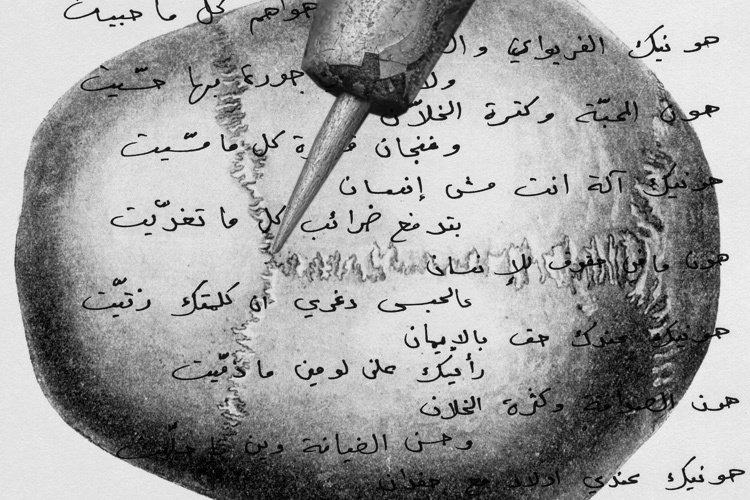 هواهم كل ما حبيت
هونيك الفريواي وال
ولا جورة بها حسّيت
هون المحبّة وكترة الخلان
وفنجان قهوة كل ما مسّيت
هونيك آلة انت مش إنسان
بتدفع ضرائب كل ما تغدّيت
هون ما في حقوق للإنسان
عالحبس دغري ان كلمتك زتيّت
هونيك عندك حق بالإيمان
رأيك على لومين ما دقّيت
هون الصداقة وكثرة الخلان
وحسن الضيافة وين
هونيك عندي اولاد مع